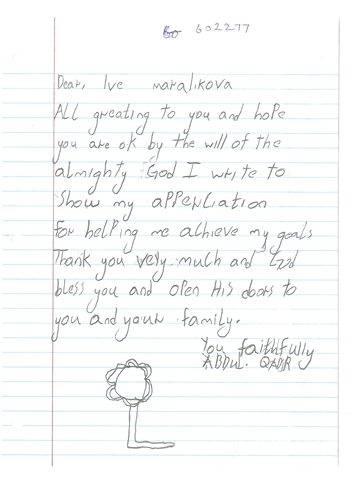 Bo 602277
Dear, Ive maralikova
All greating to you and hope
you are ok by the will of the
almighty God I write to
show my appenciation
for helping me achieve my goals
Thank you very much and God
bless you and open His doors to
you and your family.
You faithfully
ABDUL. QADIR